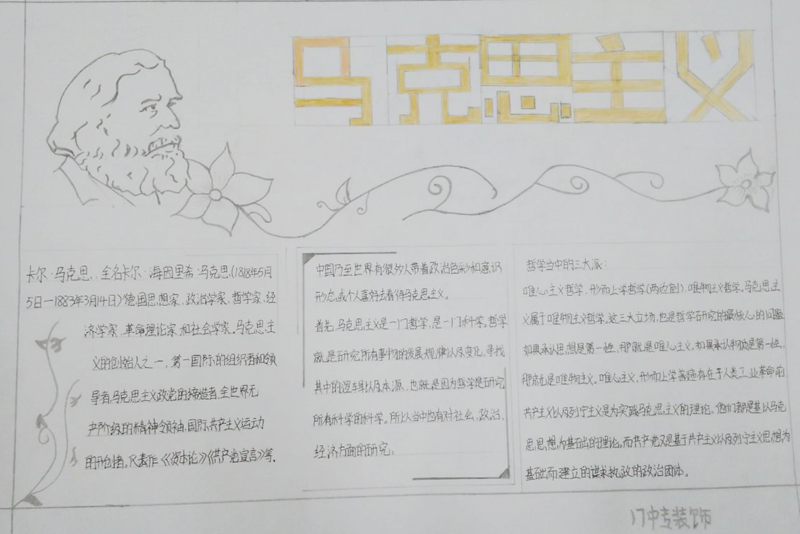 马克思主义
卡尔·马克思，全名卡尔·海因里希·马克思(1818年5月
5日—1883年3月14日)德国思想家、政治学家、哲学家、经
济学家、革命理论家和社会学家。马克思主
义的创始人之一，第一国际的组织者和领
导者，马克思主义政党的缔造者，全世界无
产阶级的精神领袖，国际共产主义运动
的开创者。代表作《资本论》《共产党宣言》等。
中国乃至世界，有很多人带着政治色彩和意识
形态，或个人喜好去看待马克思主义。
首先，马克思主义是一门哲学，是一门科学。哲学
就是研究所有事物的发展规律以及变化，寻找
其中的逻辑以及本源，也就是因为哲学是研究
所有科学的科学，所以当中也有对社会、政治、
经济方面的研究。
哲学当中的三大派：
唯心主义哲学、形而上学哲学(两边倒)、唯物主义哲学。马克思主
义属于唯物主义哲学，这三大立场，也是哲学研究的最核心的问题
如果承认思想是第一性，那就是唯心主义，如果承认物质是第一性，
那就是唯物主义。唯心主义，形而上学普遍存在于人类工业革命前
共产主义以及列宁主义是为实践马克思主义的理论，他们都是基以马克
思思想为基础的理论，而共产党又是基于共产主义以及列宁主义思想为
基础而建立的谋求执政的政治团体。
17中专装饰